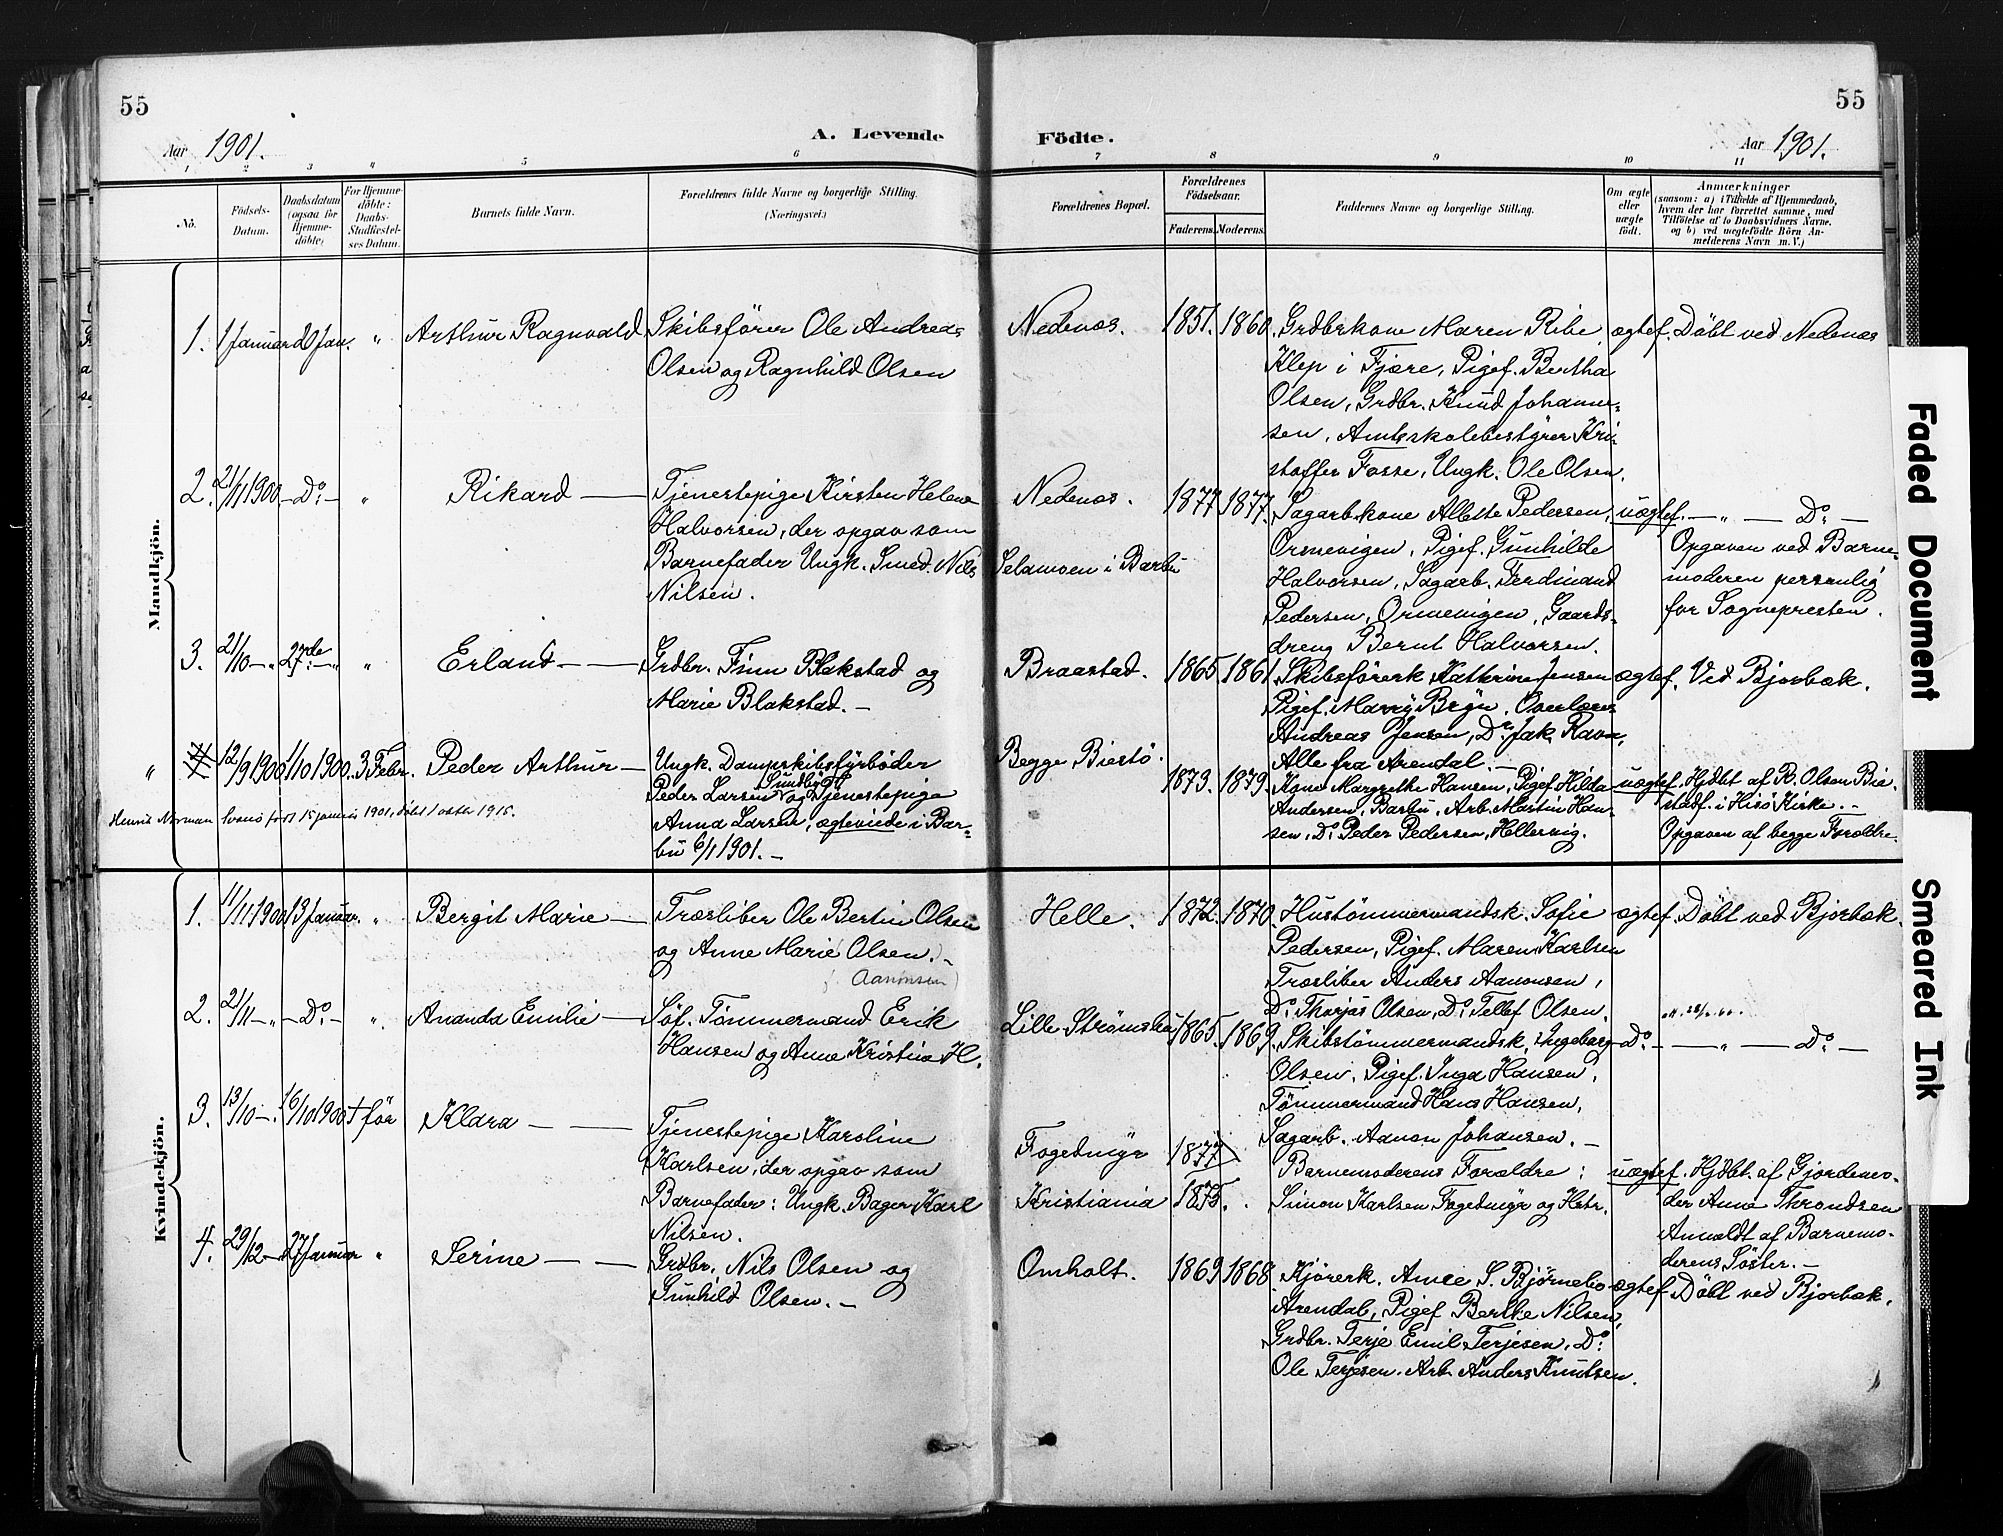 55
55
Aar 1901.
A. Levende Födte.
Aar 1901.
1 2 3 4 5 6 7 8 9 10 11
No.
Födsels-Datum.
Daabsdatum (ogsaa for Hjemmedöbte)
For Hjemmedöbte: Daabs-Stadfæstelses Datum.
Barnets fulde Navn.
Forældrenes fulde Navne og borgerlige Stilling. (Næringsvei.)
Forældrenes Bopæl.
Forældrenes Födselsaar.
Faderens. Moderens.
Faddernes Navne og borgerlige Stilling.
Om ægte eller uægte födt.
Anmærkninger
(saasom: a) i Tilfælde af Hjemmedaab,
hvem der har forrettet samme, med
Tilföielse af to Daabsvidners Navne,
og b) ved uægtefödte Börn Anmelderens Navn m. V.)
Mandkjön.
1. 1 Januar 20 Jan. " Arthur Ragnvald
Skibsförer Ole Andreas
Olsen og Ragnhild Olsen
Nedenæs. 1851. 1860.
Grdbrkone Maren Ribe,
Klep i Fjære, Pigef. Bertha
Olsen, Grdbr. Knud Johanne-
sen, Amtsskolebestyrer Kri-
stoffer Fosse, Ungk. Ole Olsen.
ægtef. Döbt ved Nedenæs
2. 21/11 1900. — Do. — " Rikard —
Tjenestepige Kirsten Helene
Halvorsen, der opgav som
Barnefader Ungk. Smed. Nils
Nilsen.
Nedenæs.
Selamoen i Barbu
1877. 1877.
Sagarb.kone Allette Pedersen,
Ormevigen, Pigef. Gunhilde
Halvorsen, Sagarb. Ferdinand
Pedersen, Ormevigen, Gaards-
dreng Bernt Halvorsen.
uægtef. — " — Do. —
Opgaven ved Barne-
moderen personlig
for Sognepresten.
3. 21/10 — " 27de — " " Erland —
Grdbr. Finn Blakstad og
Marie Blakstad. —
Braastad. 1865. 1861.
Skibsförerk. Kathrine Jensen
Pigef. Marry Bryn, Overlærer
Andreas Jensen, Do. Jak. Ravn,
Alle fra Arendal. —
ægtef. Ved Bjorbæk.
" 4 12/9 1900. 1/10 1900. 3 Febr. Peder Arthur —
Ungk. Dampskibsfyrböder
Peder Larsen og Tjenestepige
Anna Larsen, ægteviede i Bar-
bu 6/1 1901. —
Begge Biestö.
1873. 1879.
Kone Margrethe Hansen, Pigef. Hilda
Andersen, Barbu, Arb. Martin Han-
sen, Do. Peder Pedersen, Hellervig.
uægtef. Hjdbt. af R. Olsen Bie.
stadf. i Hisö Kirke. —
Opgaven af begge Forældre.
Henrik Norman født 15 januar 1901, døbt 1 1915.
Kvindekjön.
1. 11/11 1900 13 Januar. " Bergit Marie —
Træsliber Ole Bertin Olsen
og Anne Marie Olsen. —
(Aanonsen)
Helle. 1872. 1870.
Hustömmermandsk. Sofie
Pedersen, Pigef. Maren Karlsen
Træsliber Anders Aanonsen,
Do. Thorjus Olsen, Do. Tellef Olsen.
ægtef. Döbt ved Bjorbæk.
2. 21/11 — " — Do. — " Ananda Emilie —
Söf. Tömmermand Erik
Hansen og Anne Kristine H.
Lille Strömsbu 1865. 1869.
Skibstömmermandsk. Ingeborg
Olsen, Pigef. Inga Hansen,
Tömmermand Hans Hansen,
Sagarb. Aanon Johansen. —
Do. — " — Do. —
3. 13/10 —. 16/10 1900 † för Klara —
Tjenestepige Karoline
Karlsen, der opgav som
Barnefader: Ungk. Bager Karl
Nilsen.
Fogedmyr 1877
Kristiania 1875.
Barnemoderens Forældre:
Simon Karlsen Fogedmyr og Hstr.
uægtef. Hjdbt. af Gjordemo-
der Anne Throndsen
Anmeldt af Barnemo-
derens Söster. —
4. 29/12 — 27 Januar " Serine —
Grdbr. Nils Olsen og
Gunhild Olsen. —
Omholt. 1869. 1868.
Kjörerk. Anne S. Björnebo
Arendal, Pigef Berthe Nilsen,
Grdbr. Terje Emil Terjesen, Do.
Ole Terjesen. Arb. Anders Knutsen.
ægtef. Döbt ved Bjorbæk.
Faded Document
Smeared Ink